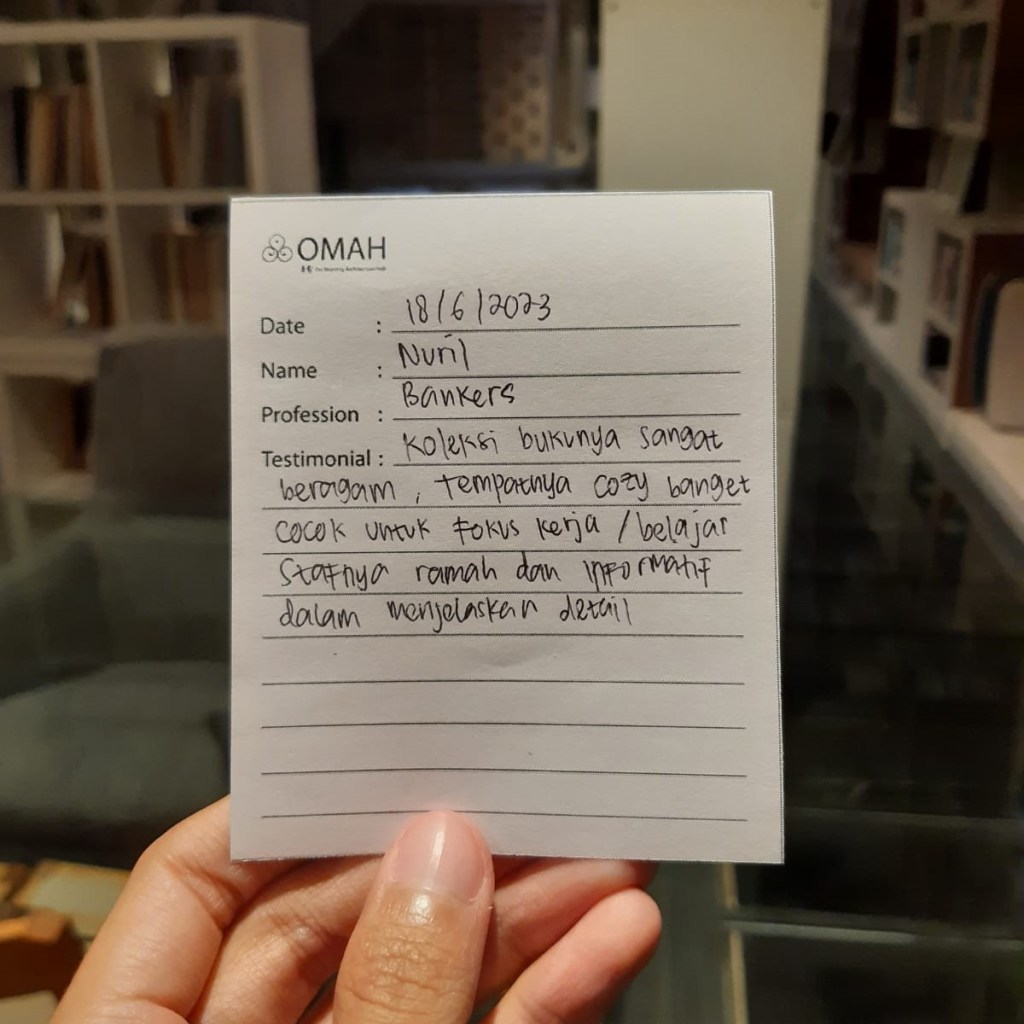 OMAH
Date : 18/6/2023
Name : Nuril
Profession : Bankers
Testimonial : Koleksi bukunya sangat
beragam, tempatnya cozy banget
cocok untuk fokus kerja / belajar
Stafnya ramah dan informatif
dalam menjelaskan detail